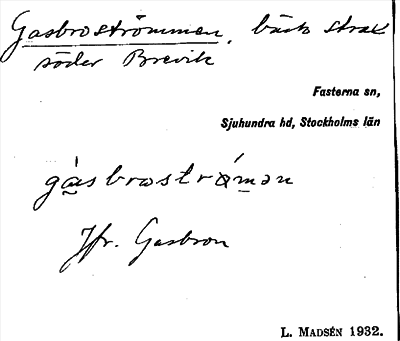 Gasbroströmmen, bäck strax
söder Brevik
Fasterna sn,
Sjuhundra hd, Stockholms län
gàsbrostrǿmən
Jfr. Gasbron
L. MADSÉN 1932.